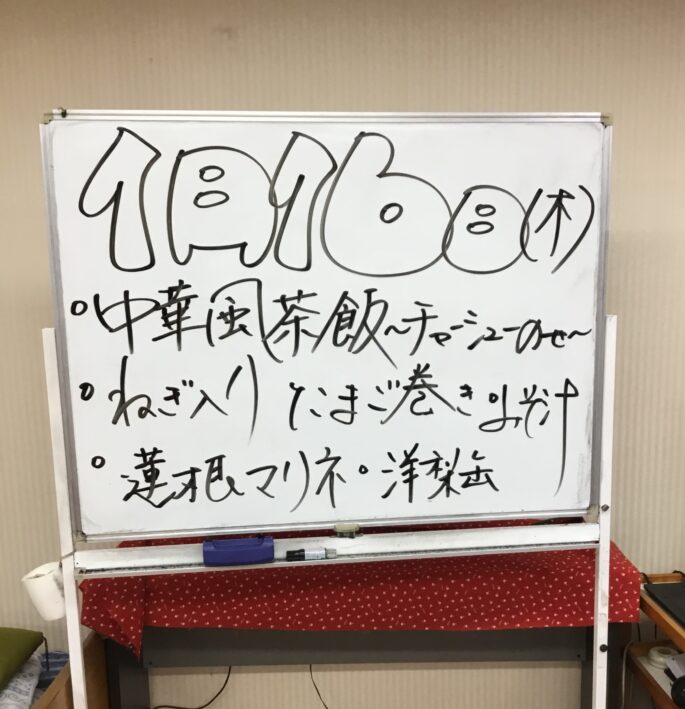 1月16日(木)
○中華風茶飯〜チャーシューのせ〜
○ねぎ入りたまご巻き○みそ汁
○蓮根マリネ○洋梨缶